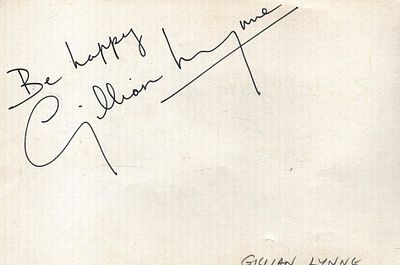 Be happy
Gillian Lynne
GILLIAN LYNNE